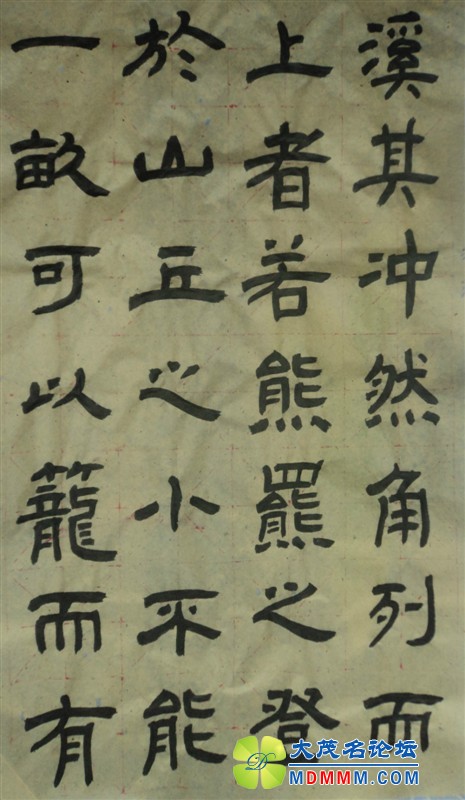 溪其冲然角列而
上者若熊羆之登
於山丘之小不能
一畝可以籠而有
大茂名论坛
MDMMM.COM